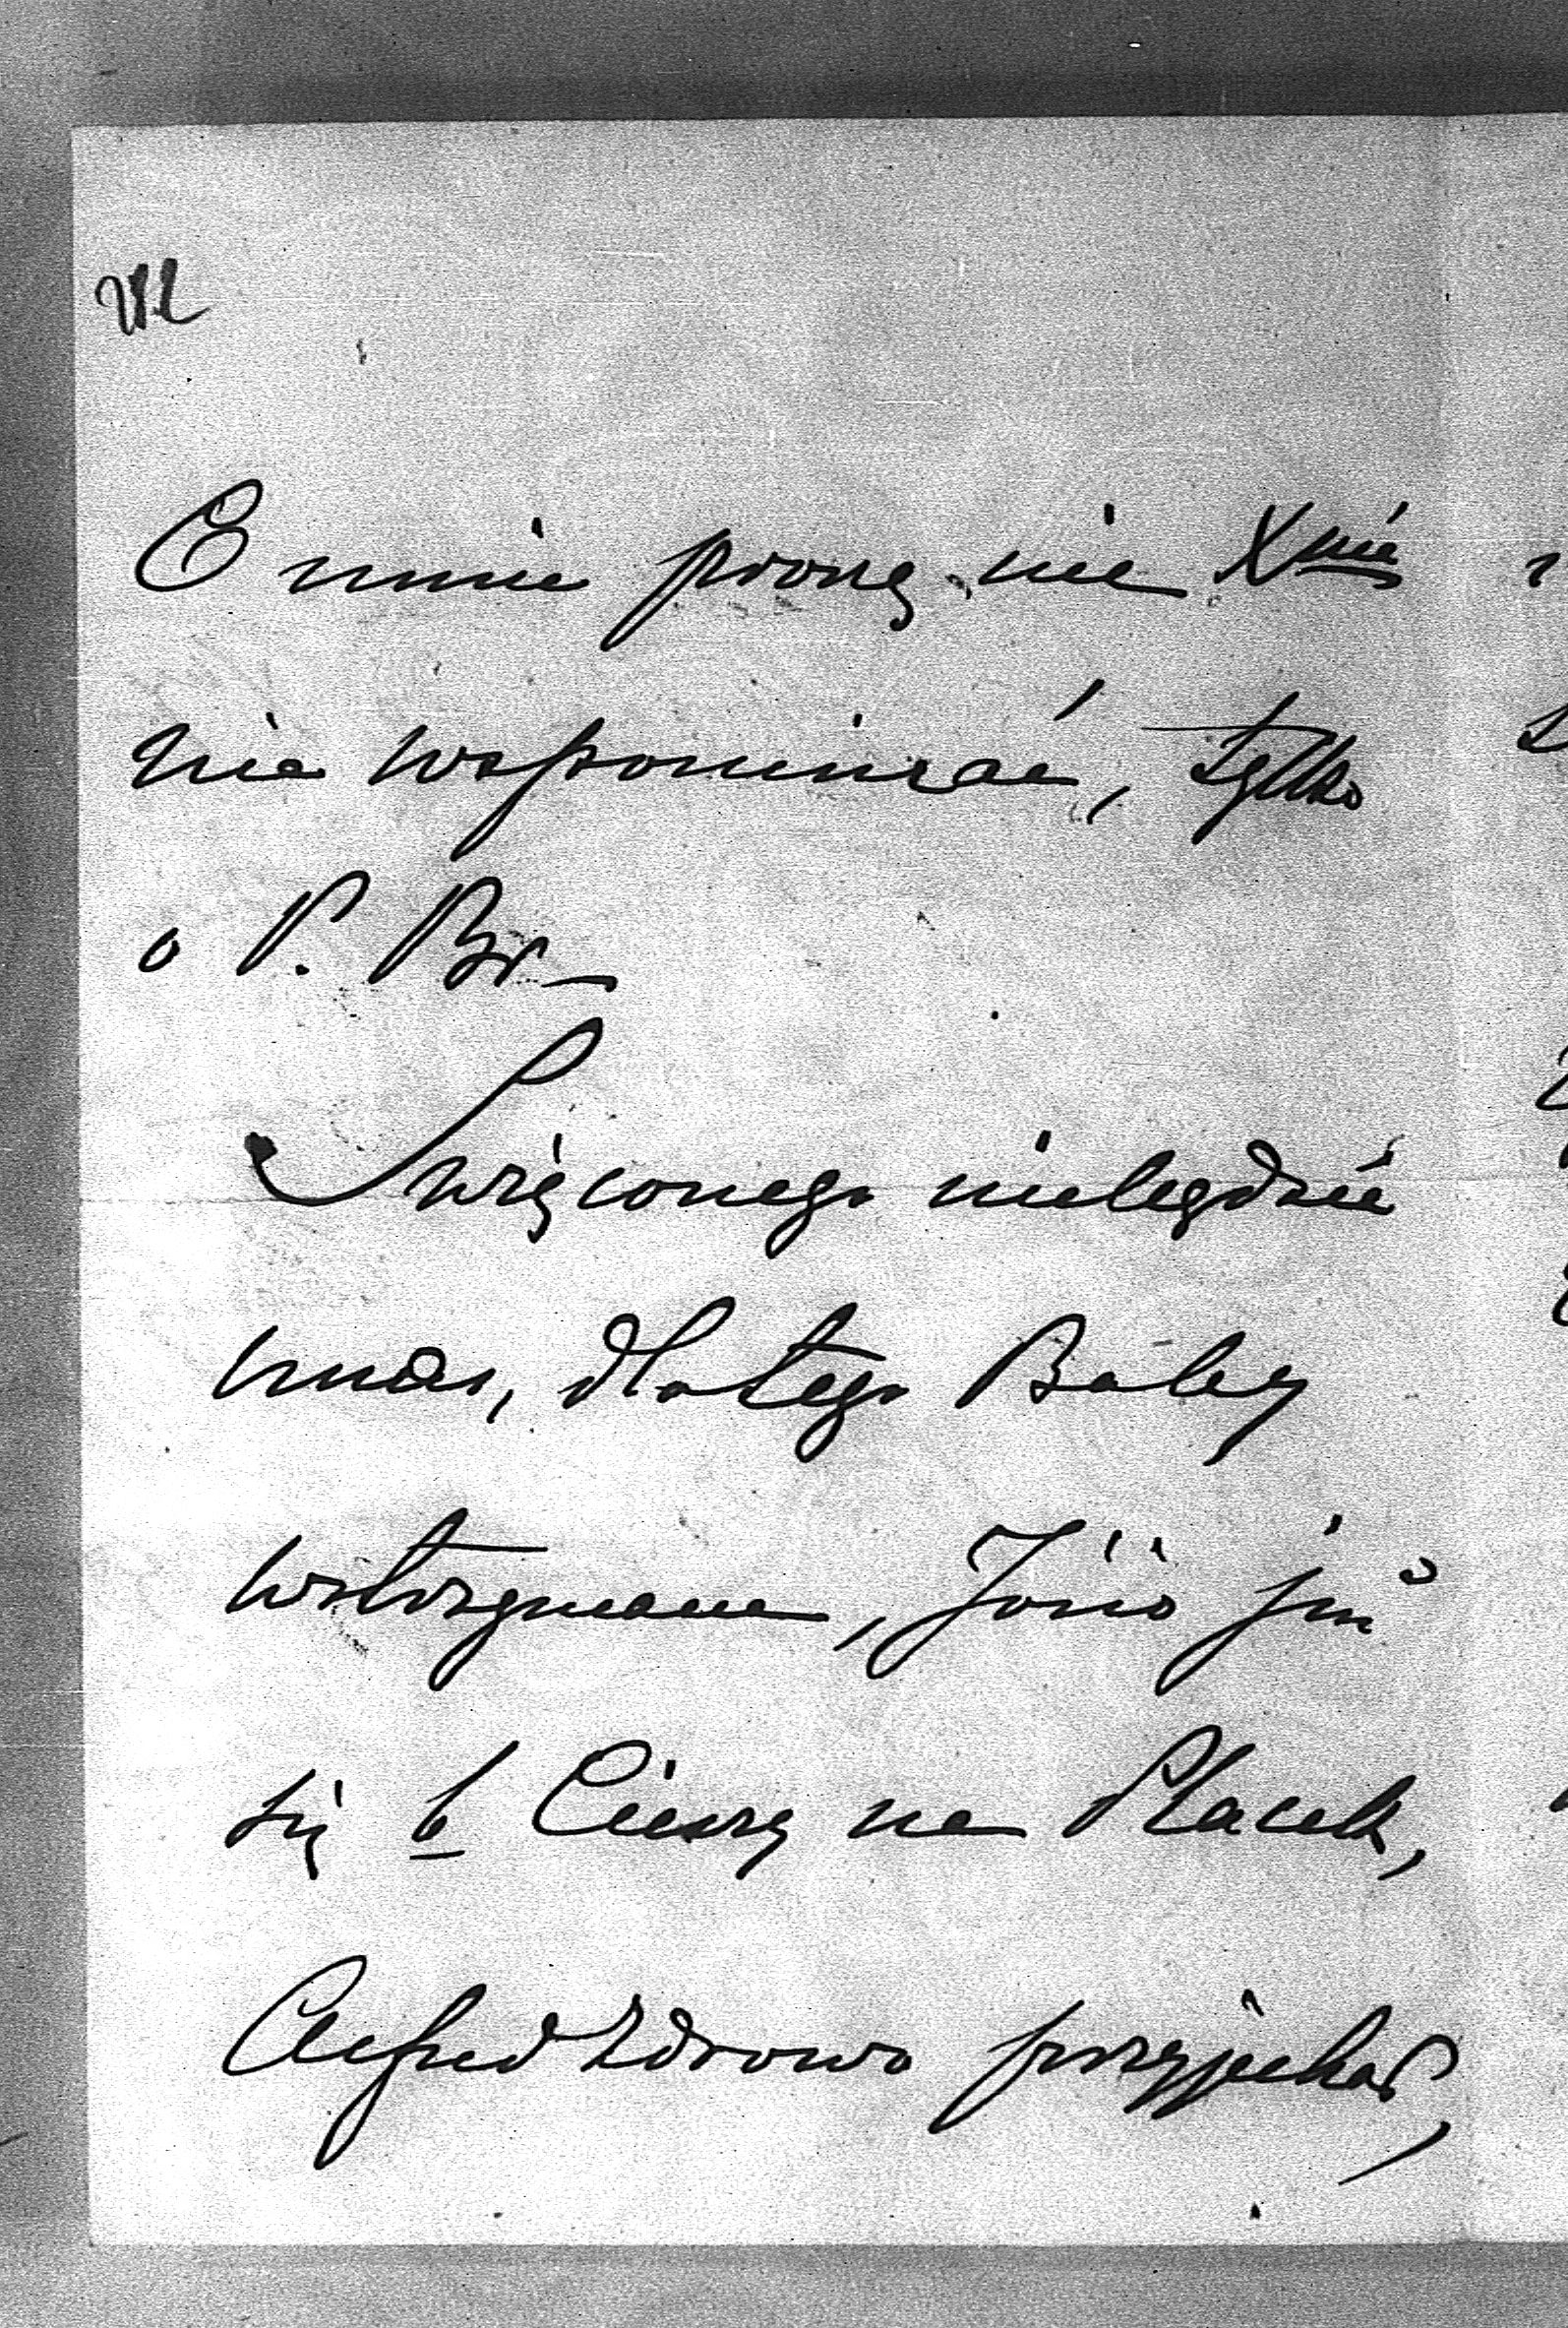 O mnie proszę nie Xnie
nie wspominać, tylko
o P. Br_
Święconego nie będzie
u nas, dlatego Baby
wstrzymane, Józio już
się b Cieszy na Placek,
Alfred zdrowo przyjechał,